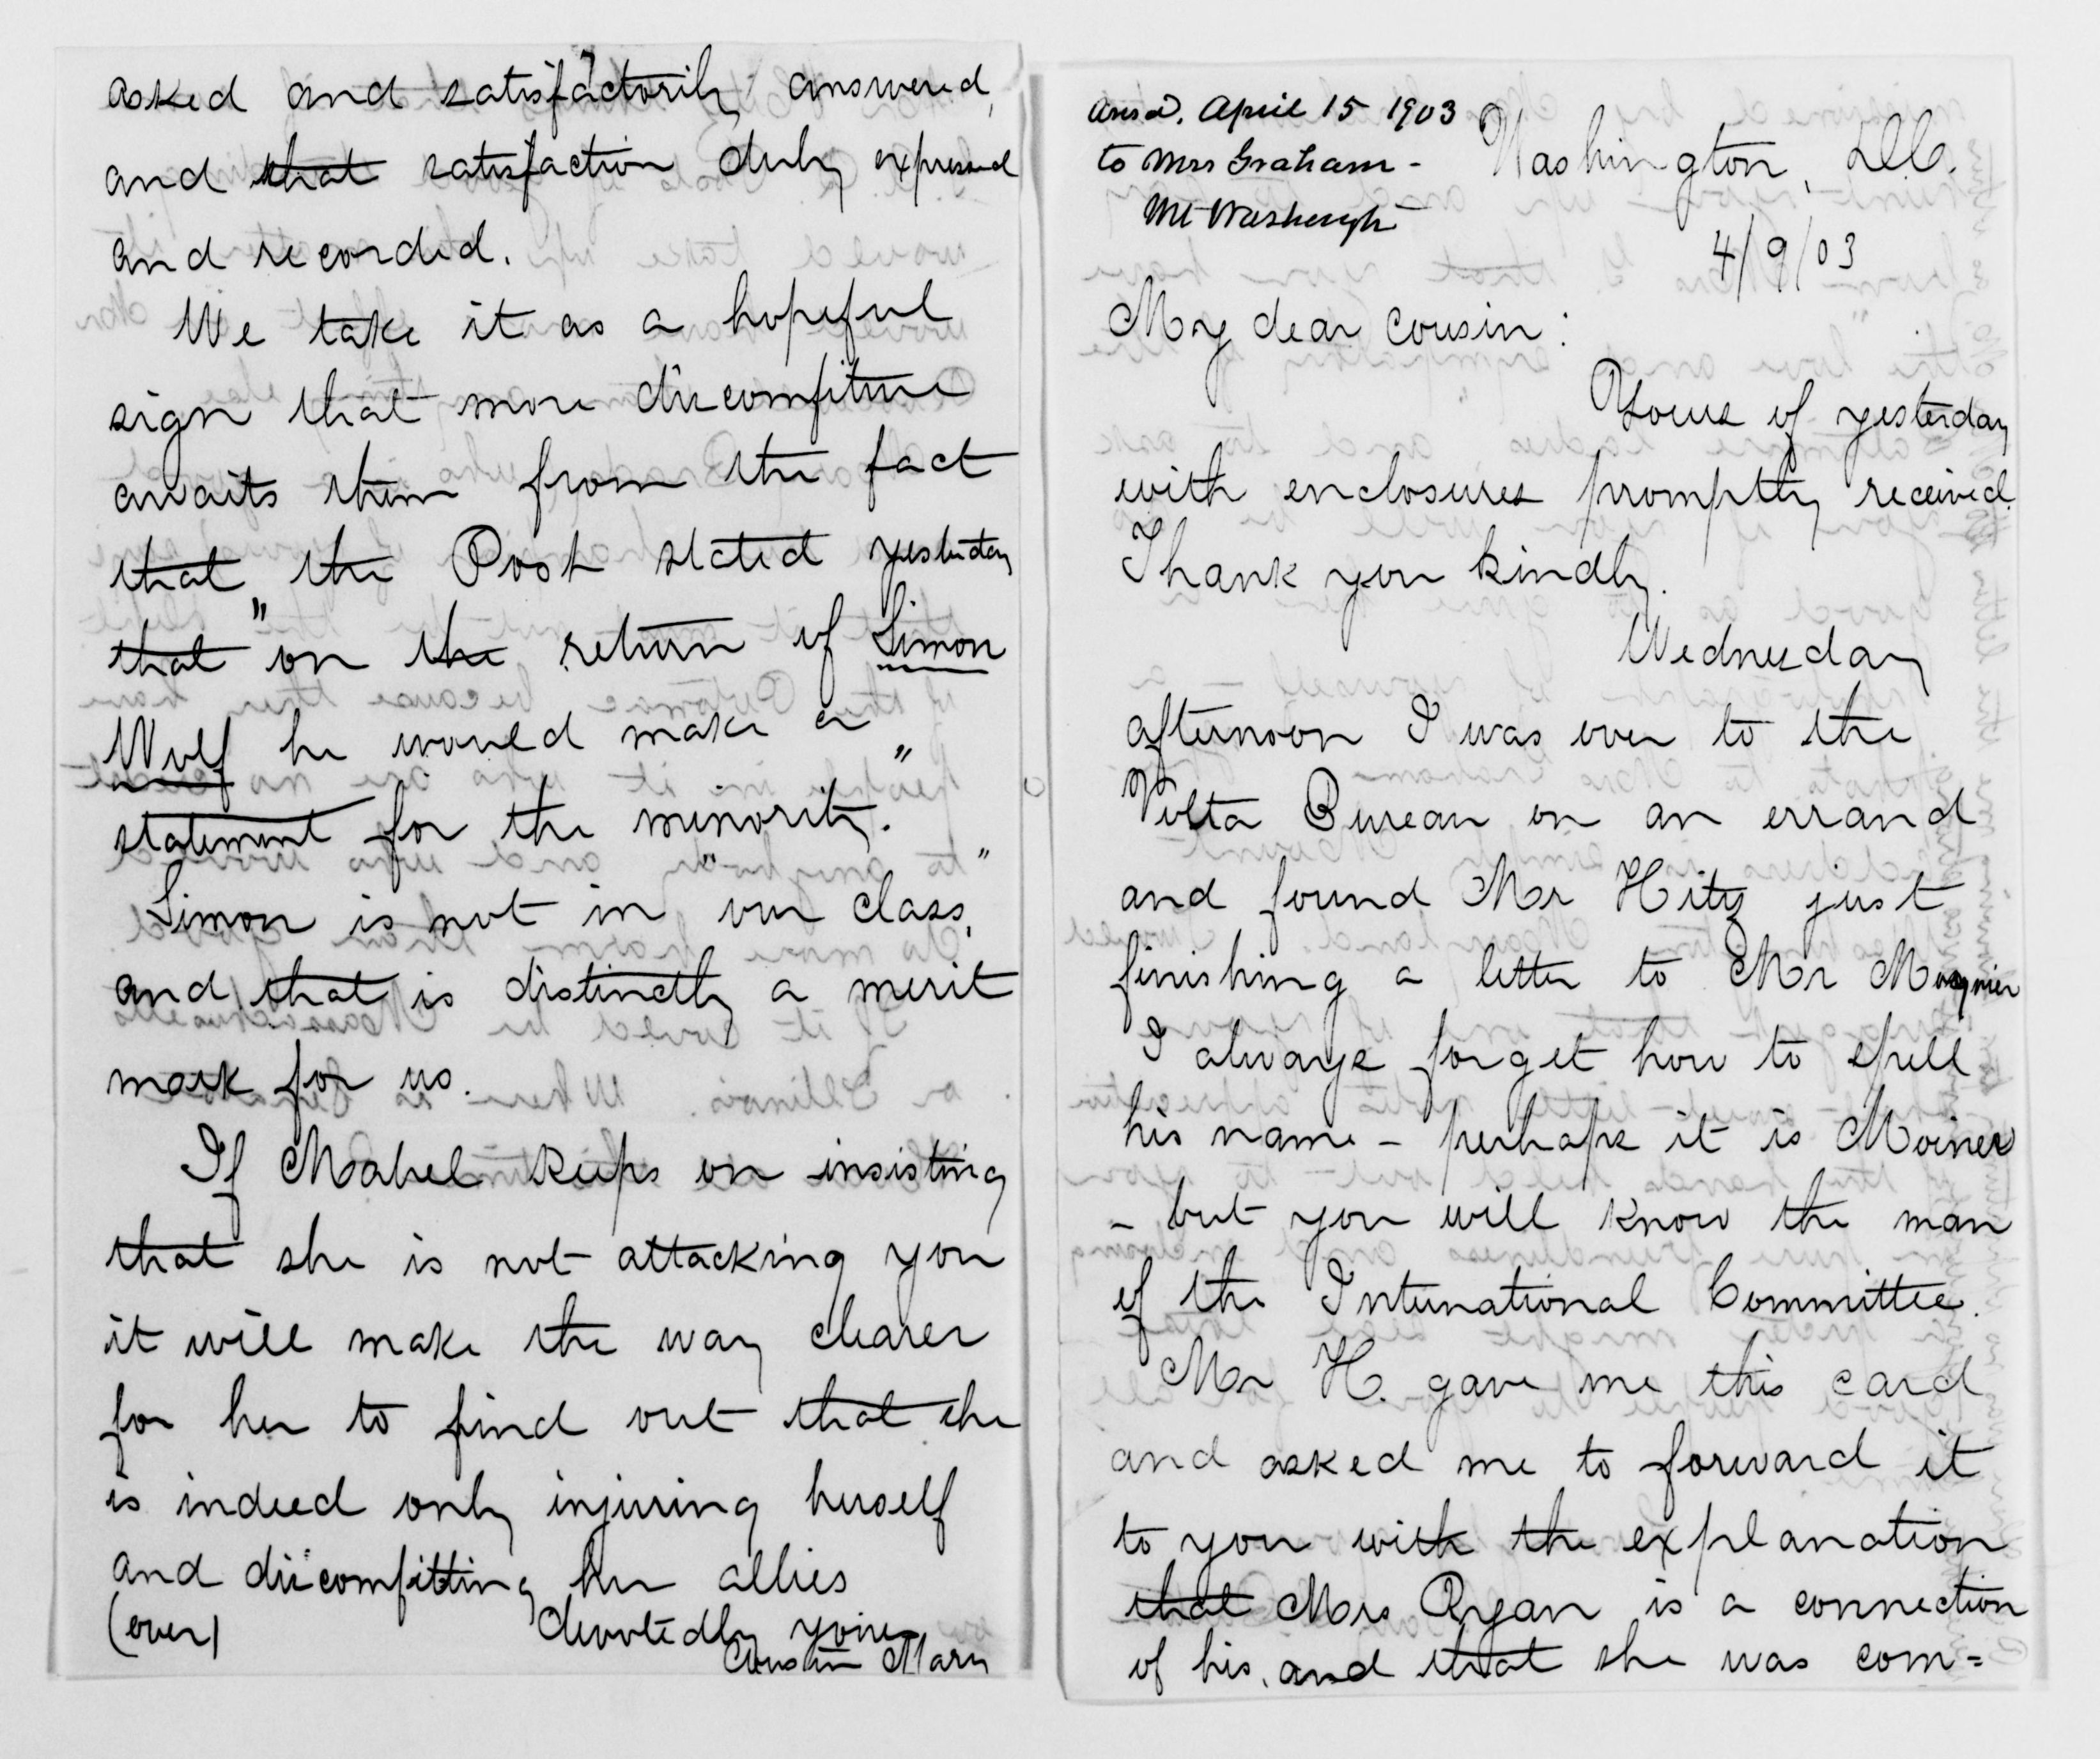 asked and satisfactorily answered,
and that satisfaction duly expressed
and recorded.
We take it as a hopeful
sign that more discomfiture
awaits them from the fact
that, the Post stated yesterday
that "on the return of Simon
Wolf he would make a
statement for the minority."
Simon is not in "our class,"
and that is distinctly a merit
mark for us.
If Mabel keeps on insisting
that she is not attacking you
it will make the way clearer
for her to find out that she
is indeed only injuring herself
and discomfitting her allies
(over)
Devotedly yours
Cousin Mary
Ans'd. April 15 1903
to Mrs Graham -
Mt Washington
Washington, D.C.
4/9/03
My dear Cousin:
Yours of yesterday
with enclosures promptly received.
Thank you kindly.
Wednesday
afternoon I was over to the
Volta Bureau on an errand
and found Mr Hitz just
finishing a letter to Mr Moynier
I always forget how to spell
his name - perhaps it is Moiner
- but you will know the man
of the International Committee.
Mr H. gave me this card
and asked me to forward it
to you with the explanation
that Mrs Ryan is a connection
of his, and that she was com=